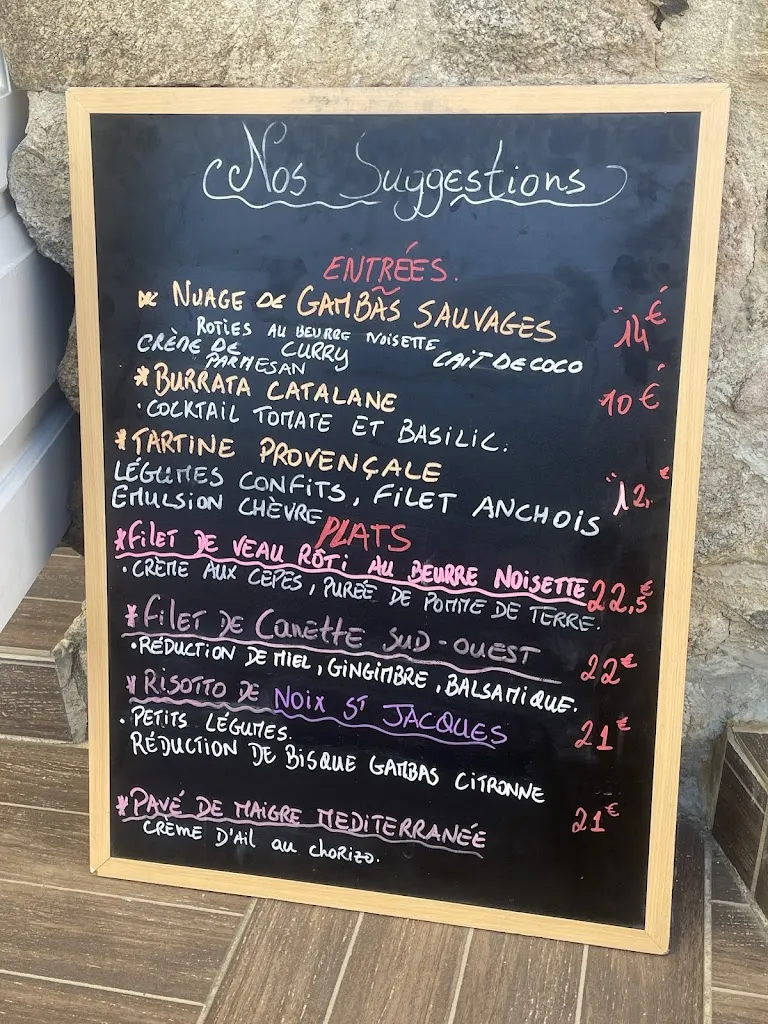 Nos Suggestions
ENTRÉES.
* NUAGE DE GAMBAS SAUVAGES 14€
ROTIES AU BEURRE NOISETTE
CRÈME DE CURRY LAIT DE COCO
PARMESAN
* BURRATA CATALANE 10€
• COCKTAIL TOMATE ET BASILIC.
* TARTINE PROVENÇALE
LÉGUMES CONFITS, FILET ANCHOIS 12.€
EMULSION CHÈVRE
PLATS
* FILET DE VEAU RÔTI AU BEURRE NOISETTE 22,5€
• CRÈME AUX CÈPES, PURÉE DE POMME DE TERRE.
* FILET DE CANETTE SUD-OUEST
• RÉDUCTION DE MIEL, GINGIMBRE, BALSAMIQUE. 22€
* RISOTTO DE NOIX ST JACQUES 21€
• PETITS LÉGUMES.
RÉDUCTION DE BISQUE GAMBAS CITRONNE
* PAVÉ DE MAIGRE MEDITERRANÉE 21€
CRÈME D'AIL au chorizo.